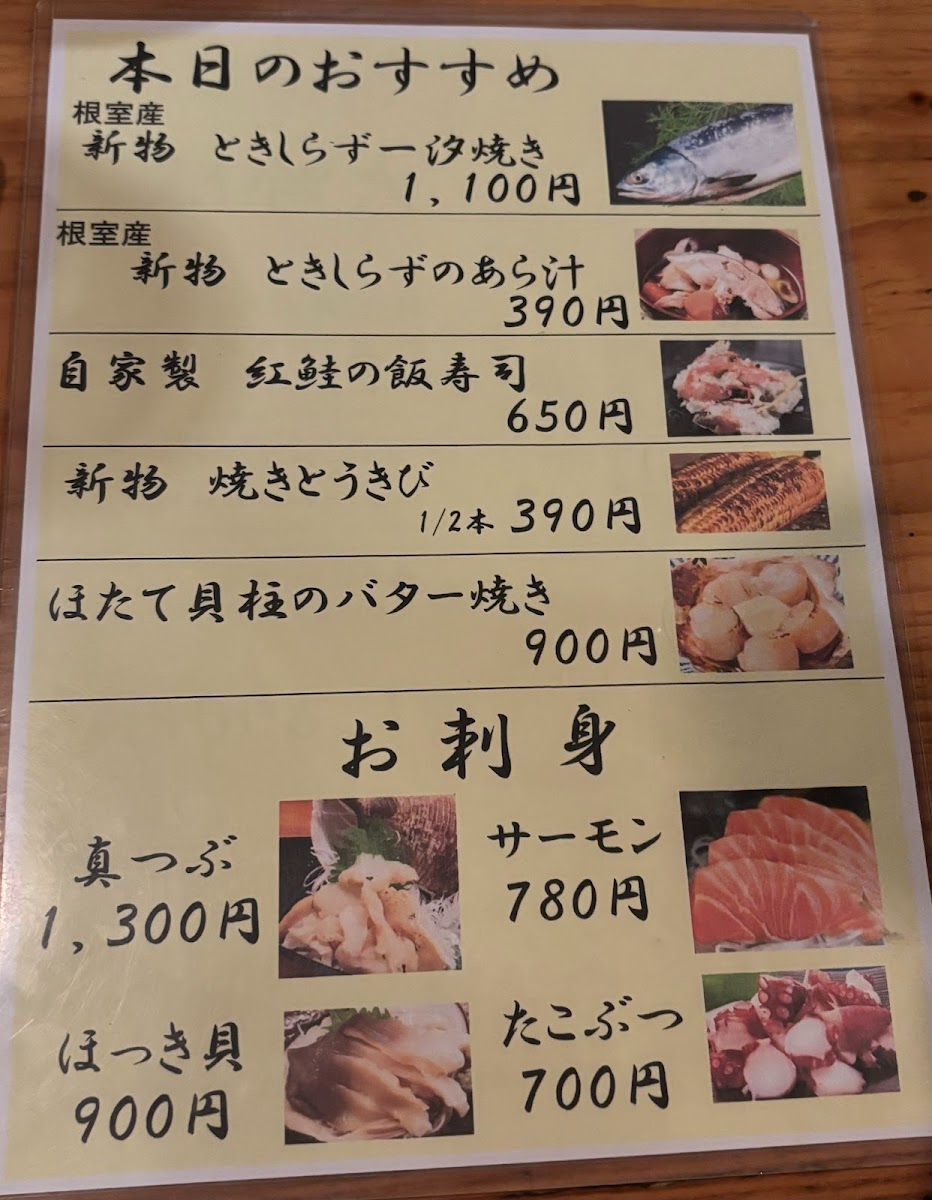 本日のおすすめ
根室産
新物 ときしらず一汐焼き
1,100円
根室産
新物 ときしらずのあら汁
390円
自家製 紅鮭の飯寿司
650円
新物 焼きとうきび
1/2本 390円
ほたて貝柱のバター焼き
900円
お刺身
真つぶ
1,300円
サーモン
780円
ほっき貝
900円
たこぶつ
700円